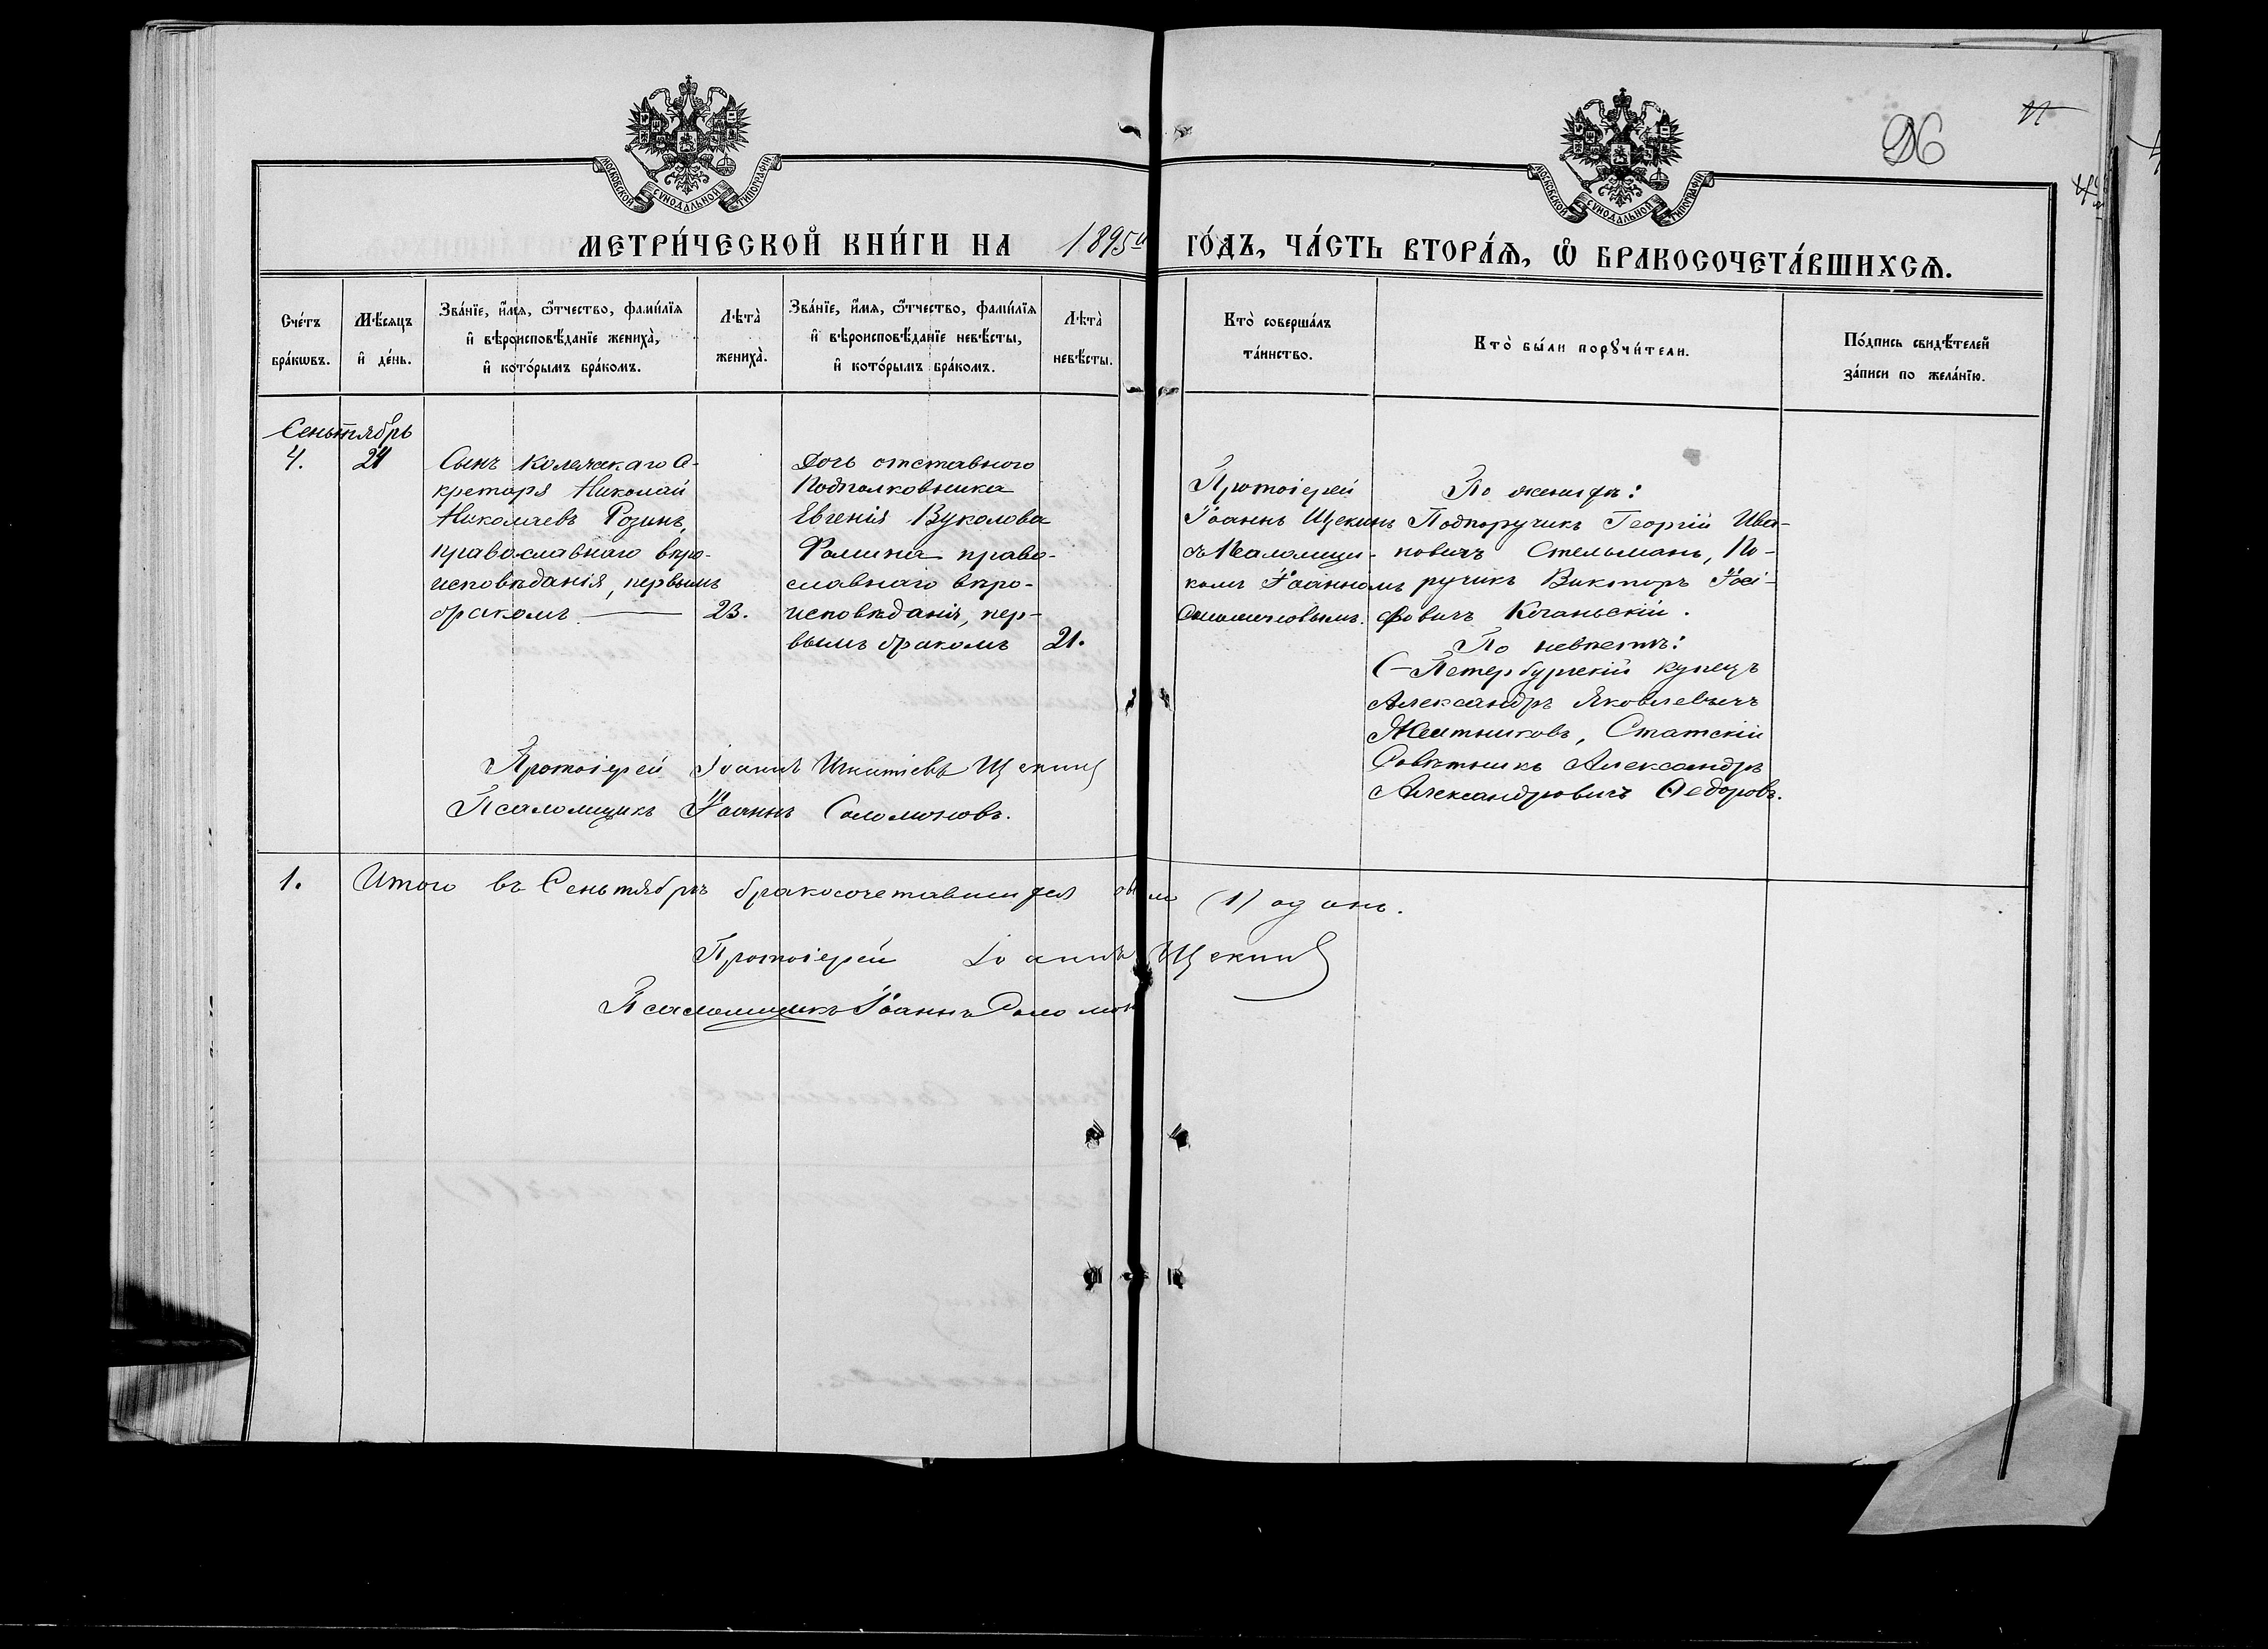 МОСКОВСКОЙ СѴНОДАЛЬНОЙ ТИПОГРАФІИ
МОСКОВСКОЙ СѴНОДАЛЬНОЙ ТИПОГРАФІИ
26
МЕТРИ́ЧЕСКОЙ КНИ́ГИ НА 1895й ГО́ДЪ, ЧА́СТЬ ВТОРА́Ѧ, Ѡ҆ БРАКОСОЧЕТА́ВШИХСѦ.
Сче́тъ бра́кѡвъ.
Мѣ́сѧцъ и҆ де́нь.
Зва́нїе, и҆́мѧ, ѻ҆́тчество, фами́лїѧ
и҆ вѣроисповѣ́данїе жениха̀,
и҆ кото́рымъ бра́комъ.
Лѣта̀ жениха̀.
Зва́нїе, и҆́мѧ, ѻ҆́тчество, фами́лїѧ
и҆ вѣроисповѣ́данїе невѣ́сты,
и҆ кото́рымъ бра́комъ.
Лѣта̀ невѣ́сты.
Кто̀ соверша́лъ
та́инство.
Кто̀ бы́ли порꙋчи́тели.
По́дпись свидѣ́телей
за́писи по жела́нїю.
Сеньтябрь
4.
24
Сынъ Колежскаго Се-
кретаря Николай
Николаевъ Розинъ,
православнаго вѣро-
исповѣданія, первымъ
бракомъ
23.
Дочь отставного
Подполковника
Евгенія Вуколова
Фомина право-
славнаго вѣро-
исповѣданія, пер-
вымъ бракомъ
21.
Протоіерей
Іоаннъ Щекинъ
съ Псаломщи-
комъ Іоанномъ
Соломоновымъ.
По женихѣ:
Подпоручикъ Георгій Ива-
новичъ Стельманъ, По-
ручикъ Викторъ Іосі-
фовичъ
По невѣстѣ:
С-Петербургскій купецъ
Александръ Яковлевичъ
Статскій
Совѣтникъ Александръ
Александровичъ Ѳедоровъ.
Протоіерей Іоаннъ Игнатіевъ Щекинъ
Псаломщикъ Іоаннъ Соломоновъ.
1.
Итого въ Сеньтябрѣ бракосочетавшихся было (1) одинъ.
Протоіерей Іоаннъ Щекинъ
Псаломщикъ Іоаннъ Соломон